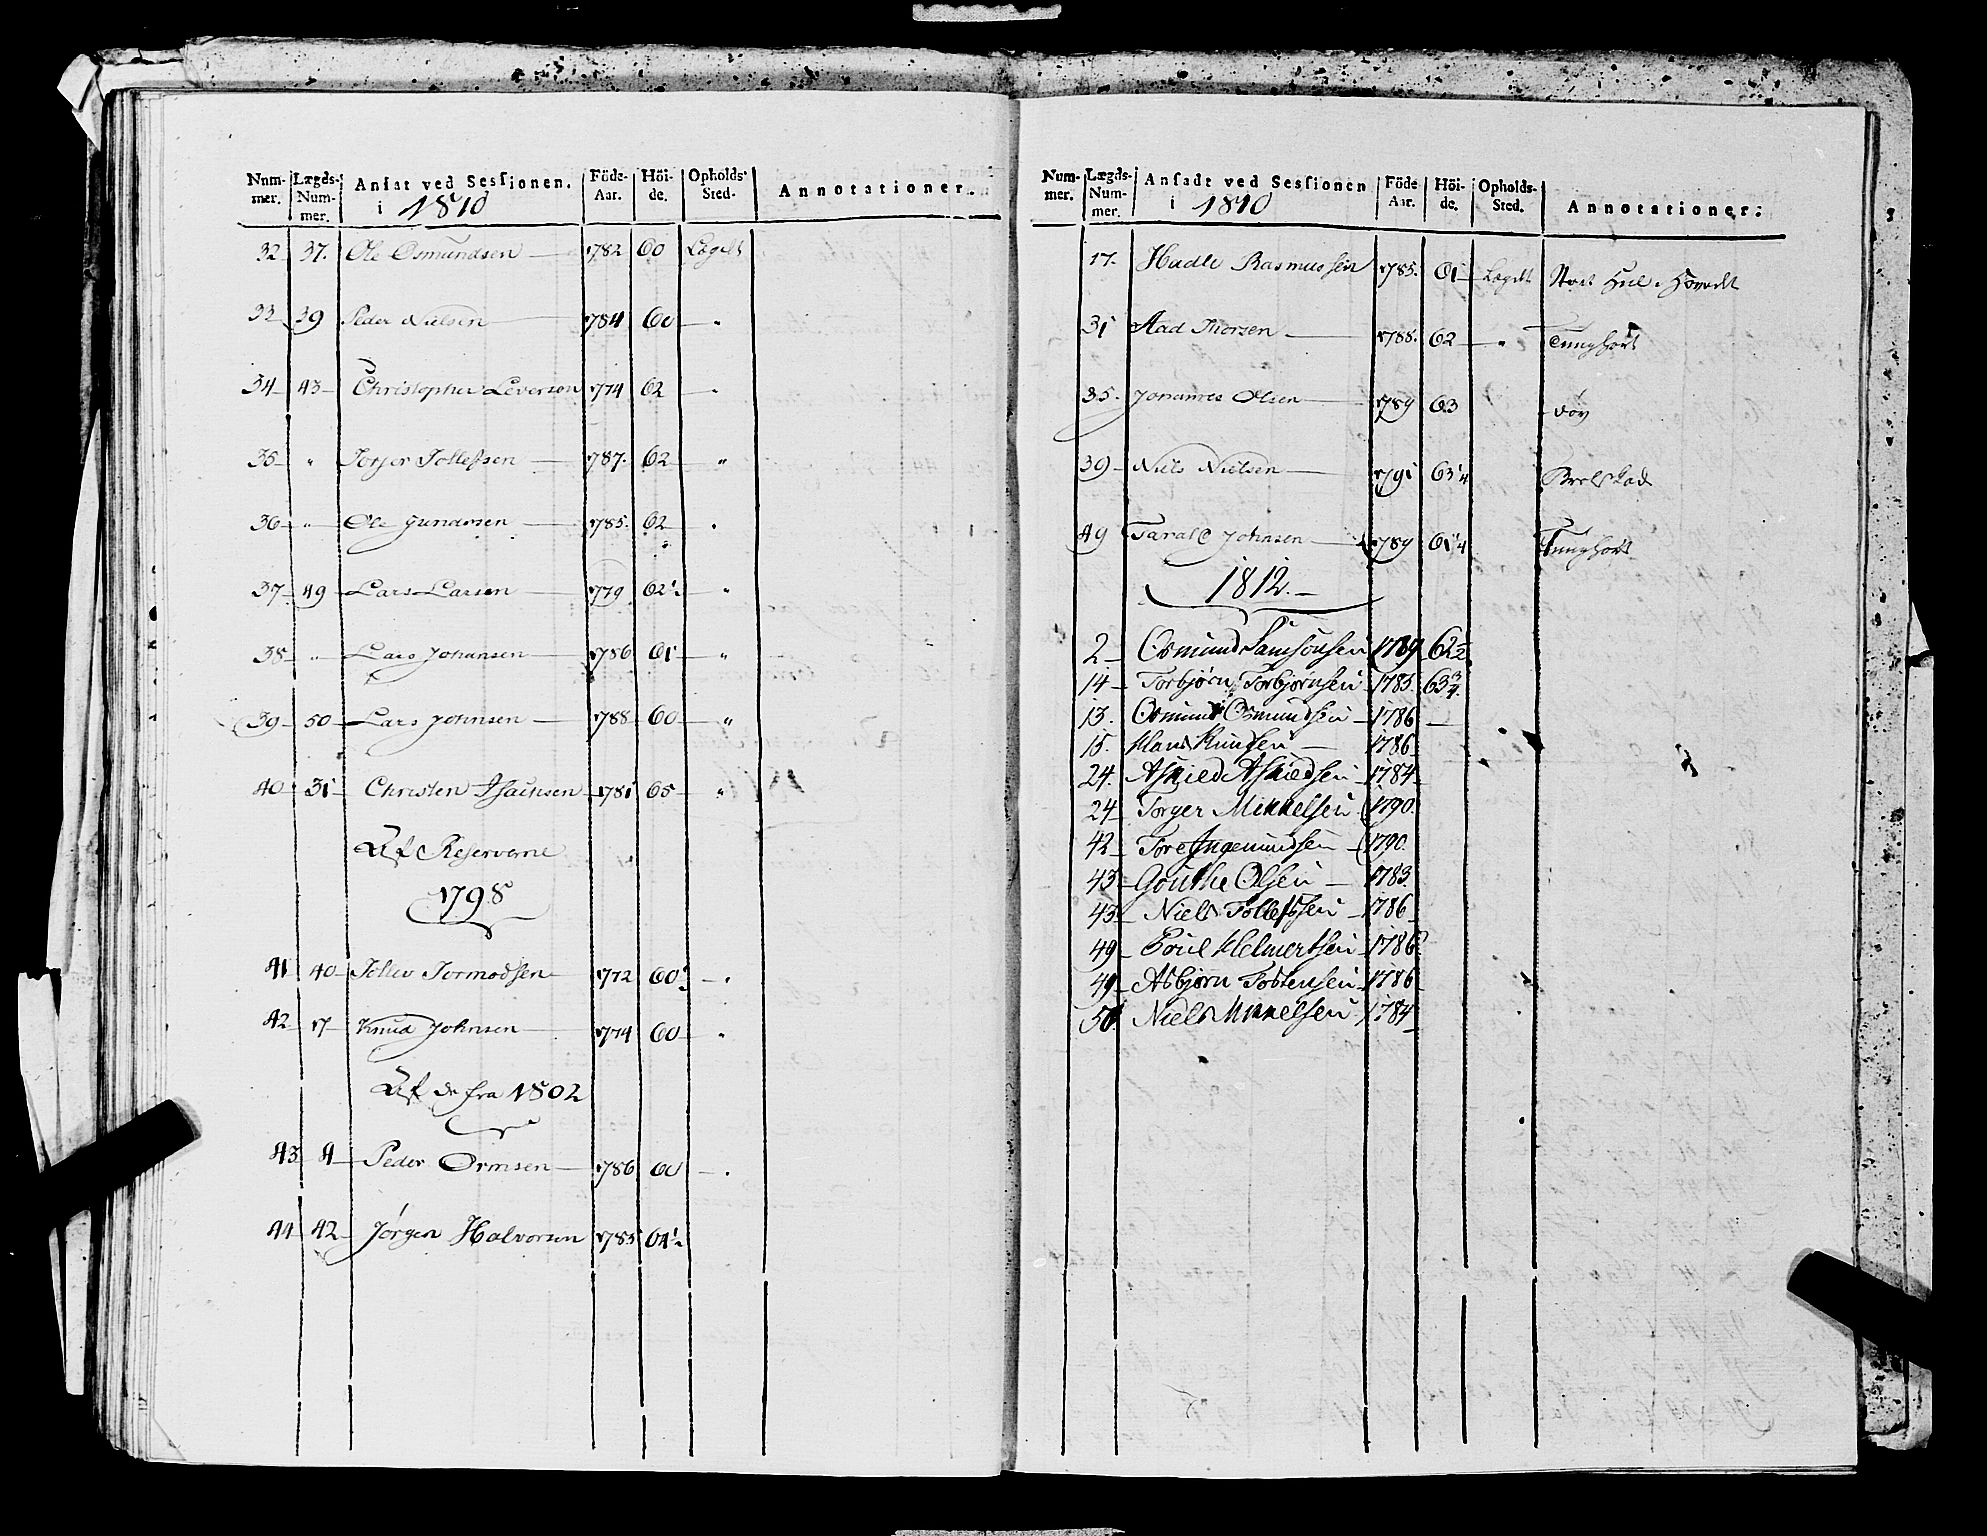 Num- Lægds- Ansat ved Sessionen. Föde- Höi- Opholds- Annotationer.
mer. Num- i 1810 Aar. de. Sted.
mer.
32 37. Ole Osmundsen 1782 60 Lægdt
33 39 Peder Nielsen 1784 60 "
34 43 Christopher Leversen 1774 62 "
35 " Torger Tollefsen 1787. 62 "
36 " Ole Gundersen 1785. 62 "
37 49 Lars Larsen 1779 62½ "
38 " Lars Johansen 1786 61 "
39 50 Lars Johnsen 1788 60 "
40 31 Christen Isachsen 1781 65 "
Af Reserverne
1798
41 40 Tollev Tormodsen 1772 60½ "
42 17 Knud Johnsen 1774 60 "
Af de fra 1802
43 4 Peder Ormsen 1786 60 "
44 42 Jørgen Halvorsen 1785 64½
Num- Lægds- Ansadt ved Sessionen Föde Höi- Opholds- Annotationer.
mer. Num- i 1810 Aar. de. Sted.
mer.
17. Hadle Rasmussen 1785. 61 Lægdt Hovedt
31 Aad Thorsen 1788. 62 " Tunghørt
35. Johannes Olsen 1789 63 døv
39 Niels Nielsen 1791 63¼
49 Tarald Johnsen 1789 61¼ Tunghørt
1812.
2 Osmund Samsonsen 1789 62½
14 Torbjørn Torbjørnsen 1785. 63¾
13. Osmund Osmundsen 1786
15. Hans Knudsen 1786
24. Asgied Asgiedsen 1784
24 Torger Mikkelsen 1790.
42 Tore Ingemundsen 1790.
43 Gouthe Olsen 1783.
43 Niels Tollefssen 1786
49 Poul Helmertsen 1786
49 Asbjørn Tostensen 1786
50 Niels Mikkelsen 1784